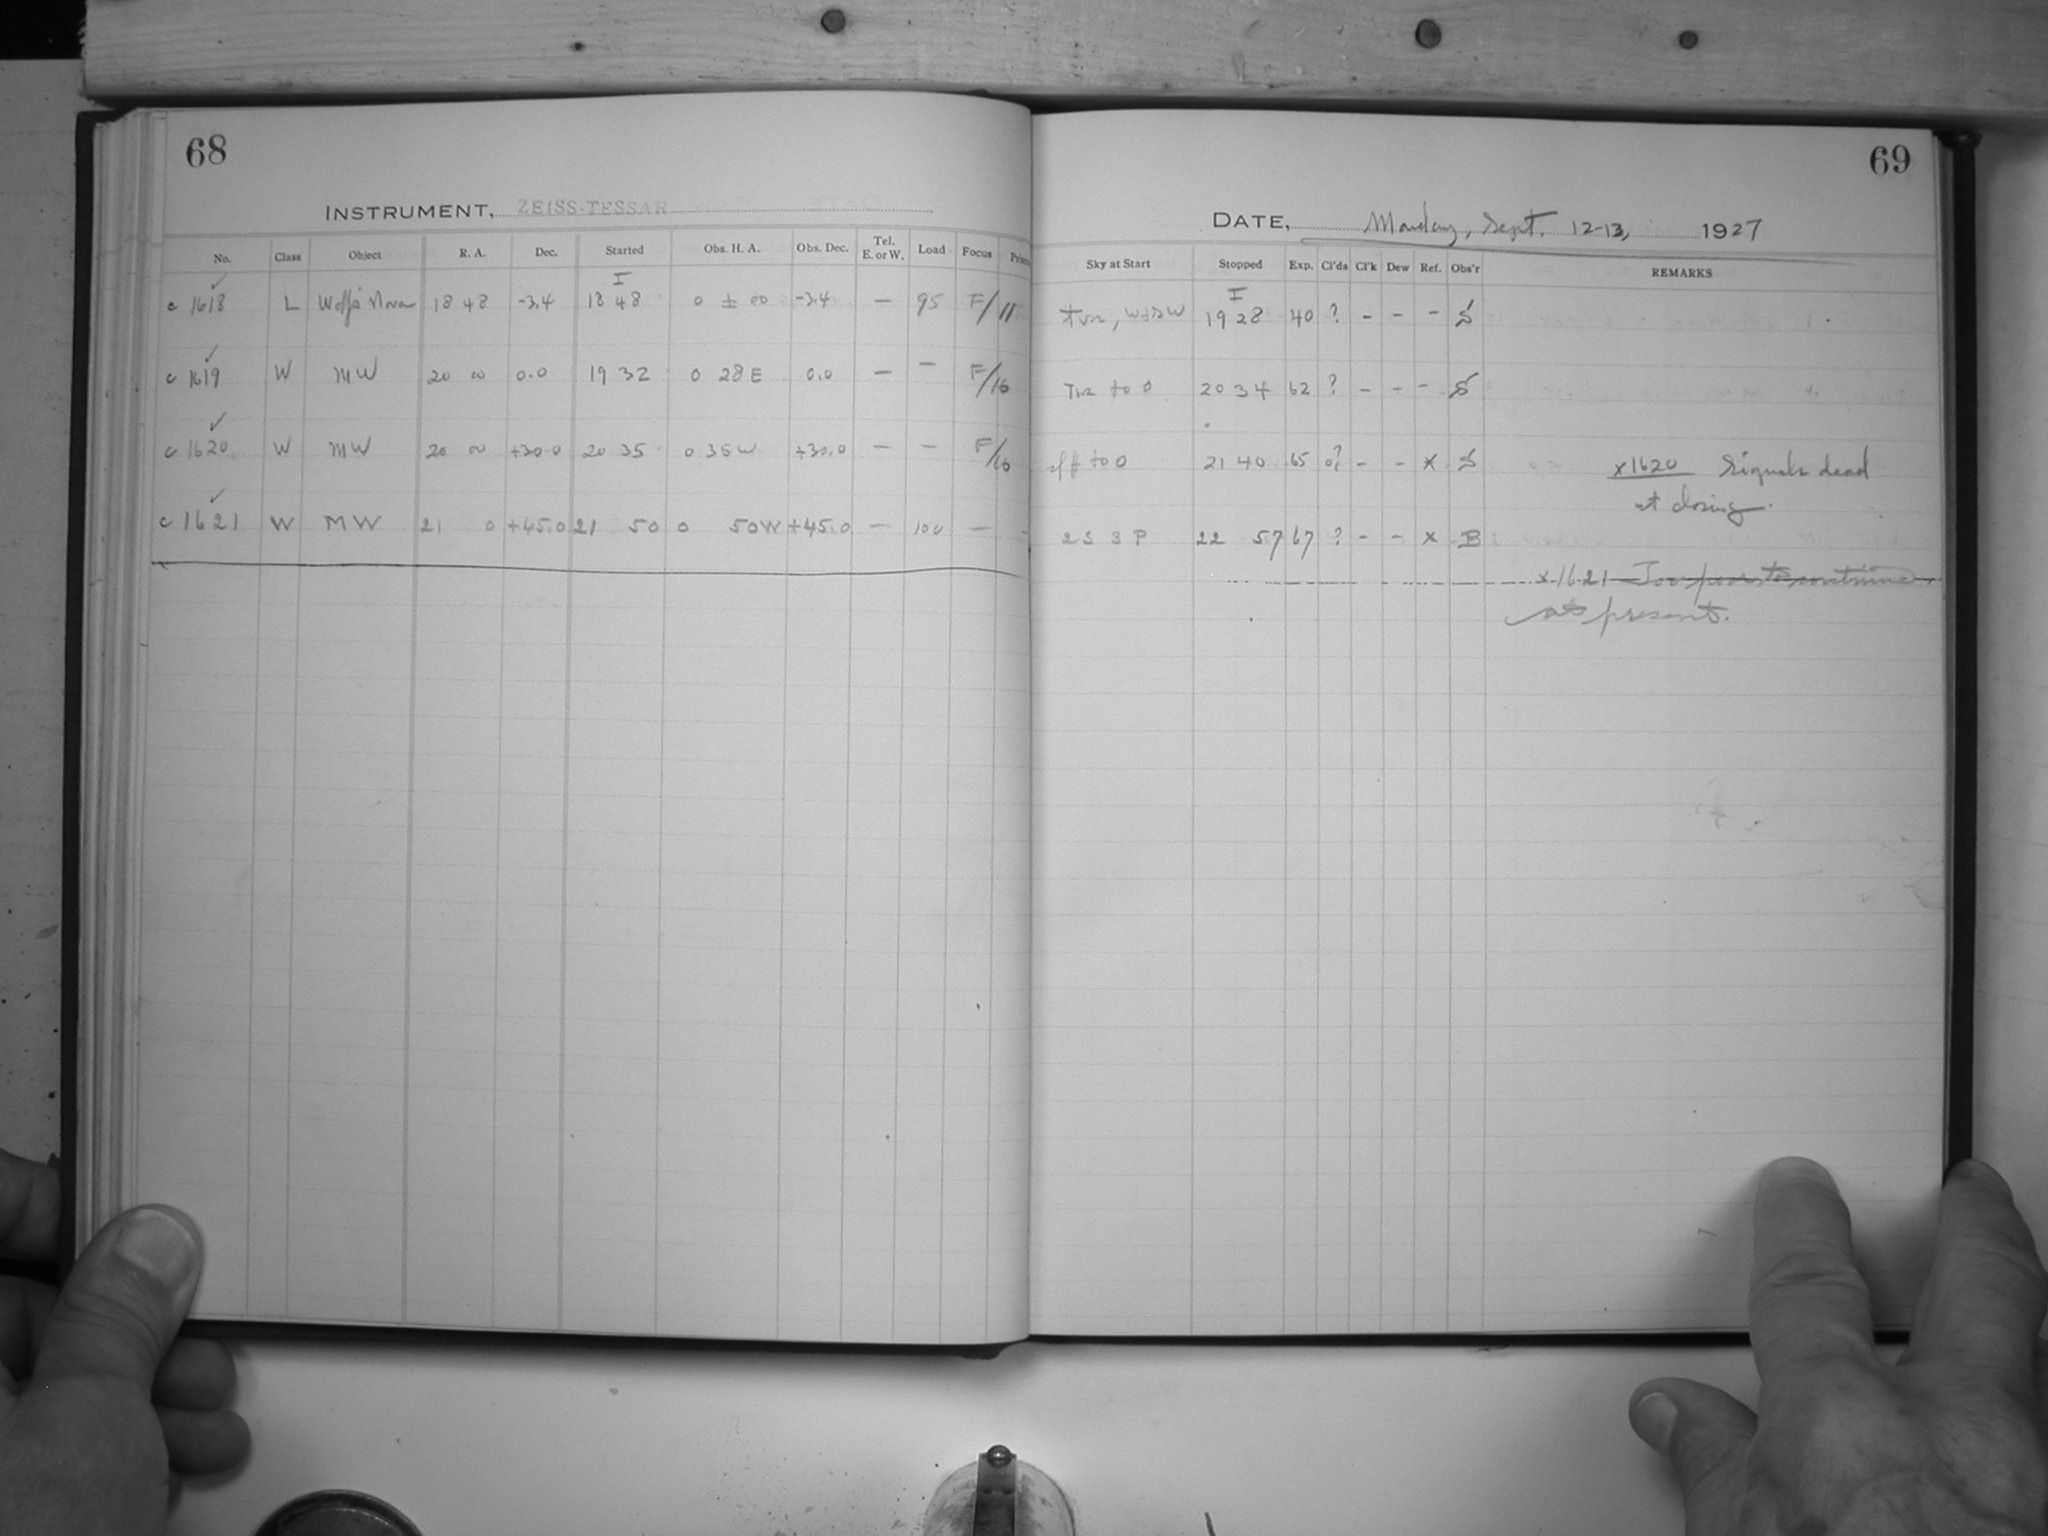 68
INSTRUMENT, ZEISS-TESSAR
No. Class Object R. A. Dec. Started Obs. H. A. Obs. Dec. Tel. E. or W. Load Focus Prism
I
c 1618 L Wolf's Nova 18 48 -3.4 18 48 0 ± 00 -3.4 — 95 F/11
c 1619 W MW 20 00 0.0 19 32 0 28 E 0.0 — — F/16
c 1620 W MW 20 00 +30.0 20 35 0 35 W +30.0 — — F/16
c 1621 W MW 21 0 +45.0 21 50 0 50 W +45.0 — 100 —
69
DATE, Monday, Sept. 12-13, 1927
Sky at Start Stopped Exp. Cl'ds Cl'k Dew Ref. Obs'r REMARKS
I
19 28 40 ? - - - S
to 0 20 34 62 ? - - - S
to 0 21 40 65 - - x S x1620 Signals dead
at closing.
2 S 3 P 22 57 67 ? - - x B
x 1621 Too poor to continue
at present.